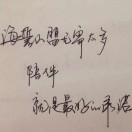 海誓山盟太多
陪伴
就是最好的承诺